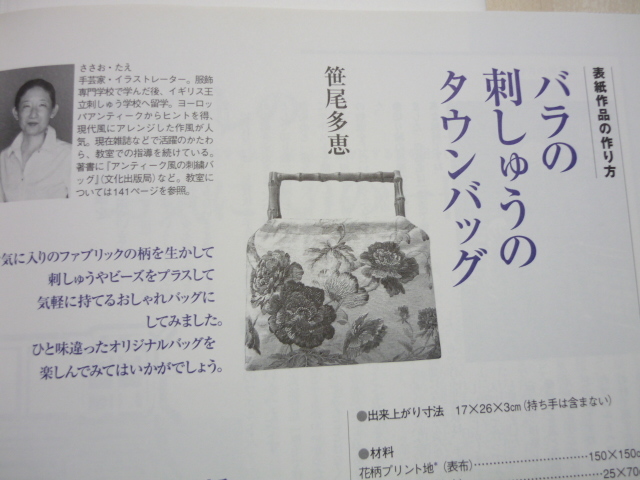 表紙作品の作り方
バラの
刺しゅうの
タウンバッグ
笹尾多恵
ささお・たえ
手芸家・イラストレーター。服飾
専門学校で学んだ後、イギリス王
立刺しゅう学校へ留学。ヨーロッ
パアンティークからヒントを得、
現代風にアレンジした作風が人
気。現在雑誌などで活躍のかたわ
ら、教室での指導を続けている。
著書に『アンティーク風の刺繍バ
ッグ』(文化出版局)など。教室に
ついては141ページを参照。
気に入りのファブリックの柄を生かして
刺しゅうやビーズをプラスして
気軽に持てるおしゃれバッグに
してみました。
ひと味違ったオリジナルバッグを
楽しんでみてはいかがでしょう。
●出来上がり寸法 17×26×3cm(持ち手は含まない)
●材料
花柄プリント地*(表布)……………150×150c
……………25×70c